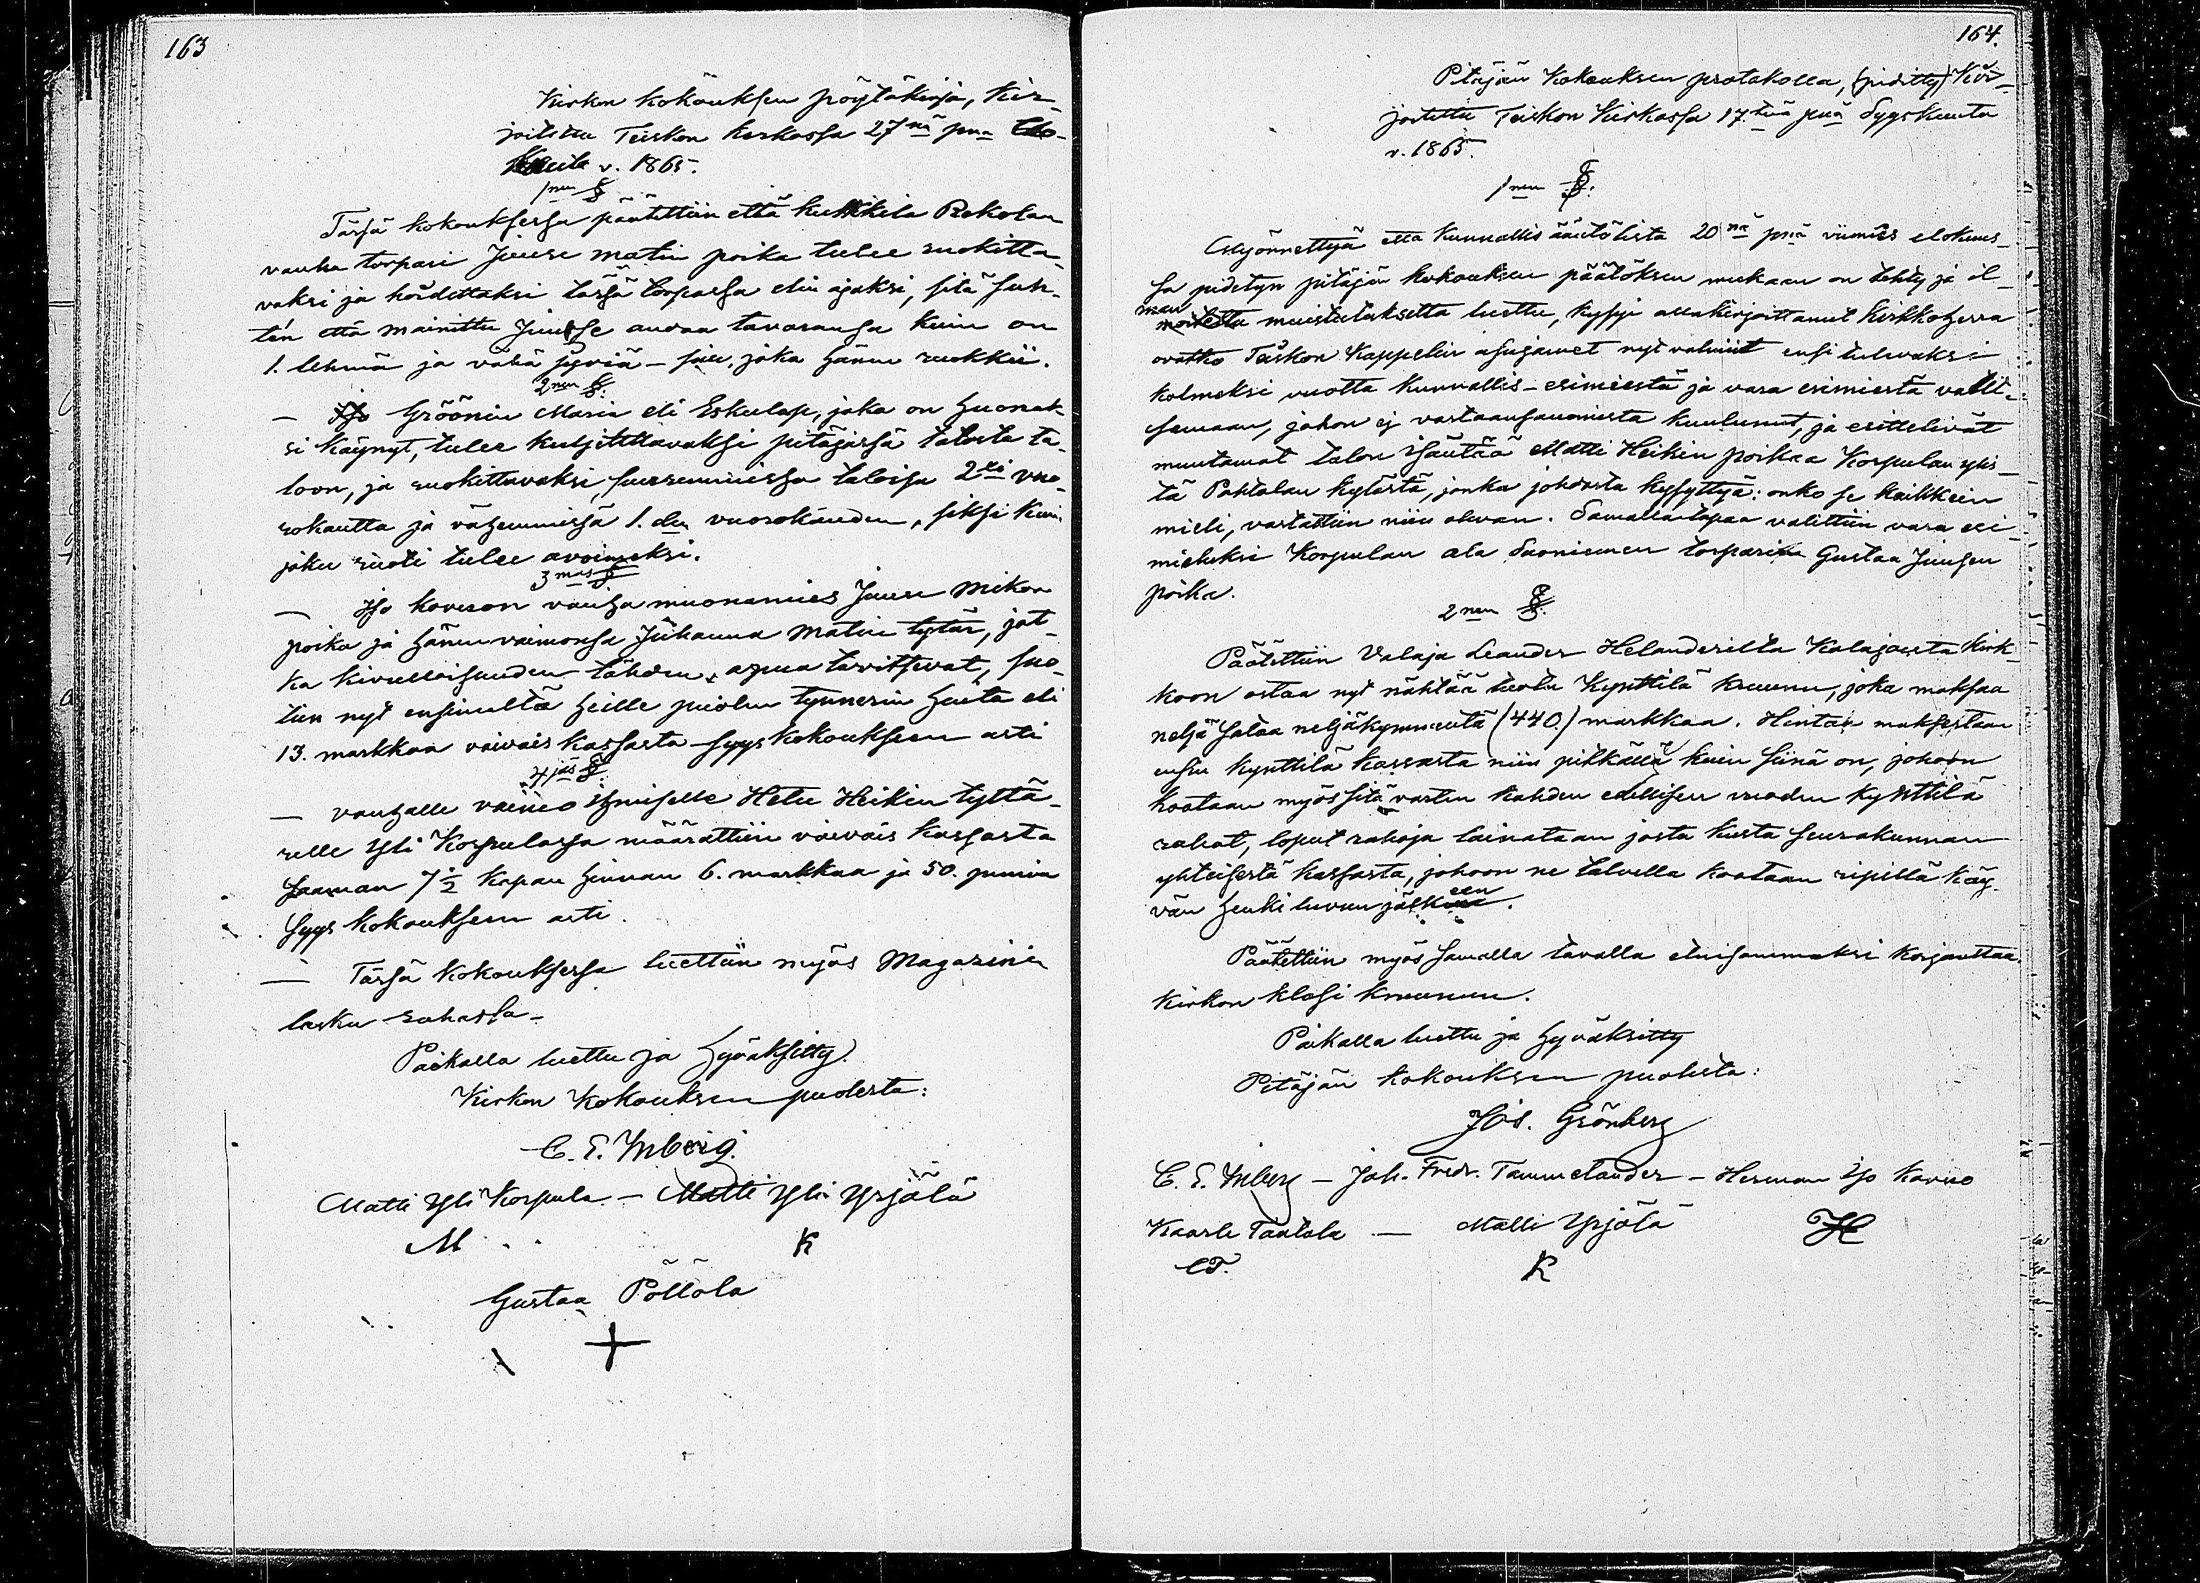 163
Kirkon kokouksen pöytäkirja, kir-
joitettu Teiskon kirkossa 27nä pnä Elo-
kuuta v. 1865.
1nen §
Tässä kokouksessa päätettiin että kukkila Rekolan
vanha torpari Juuse Matin poika tulee ruokitta-
vaksi ja hoidettaksi tässä torpassa elin ajaksi, sitä suh-
ten että mainittu Juuse antaa tavaransa kuin on
1. lehmä ja vähä jyviä - sille, joka hänen ruokkii.
2nen §.
— Iso Gröönin Maria eli Eskulap, joka on huonok-
si käynyt, tulee kuljetettavaksi pitäjässä talosta ta-
loon, ja ruokittavaksi suuremmissa taloissa 2xi vuo-
rokautta ja vähemmissä 1.den vuorokauden, siksi kuin
joku ruoti tulee avoimeksi.
3mas §
— Iso Kovison vanha muonamies Juuse Mikon
poika ja hänen vaimonsa Juhanna Matin tytär, jot-
ka kivulloisuuden tähden apua tarvitsevat, suo-
tiin nyt ensimältä heille puolen tynnerin hinta eli
13. markkaa vaivais kassasta syys kokoukseen asti
4jäs §.
— vanhalle vaimo ihmiselle Hetu Heikin tyttä-
relle Yli Korpulassa määrättiin vaivais kassasta
saaman 7½ kapan hinnan 6. markkaa ja 50. penniä
syys kokoukseen asti.
— Tässä kokouksessa luettiin myös Magazinin
lasku rahassa-
Paikalla luettu ja hyväksitty.
Kirkon Kokouksen puolesta:
C. E. Inberg.
Matti Yli Korpula - Matti Yli Yrjölä
M K
Gustaa Pöllölä
+
164.
Pitäjän Kokouksen protokolla, (pidetty) Kir-
joitettu Teiskon Kirkossa 17.tenä pnä Syyskuuta
v. 1865.
1nen §.
Myönnettyä että Kunnallis ääntölista 20nä pnä viimeis elokuus-
sa pidetyn pitäjän kokouksen päätöksen mukaan on tehty ja il-
man
moitetta muistutuksetta luettu, kysyi allekirjoittanut Kirkkoherra
ovatko Teiskon Kappelin asujamet nyt valmiit ensi tulevaksi
kolmeksi vuotta kunnallis-esimiestä ja vara esimiestä valit-
semaan, johon ej vastaansanomista kuulunut, ja esittelivät
muutamat talon isäntää Matti Heikin poikaa Korpulan ylis-
tä Pohtolan kylästä, jonka johdosta kysyttyä: onko se kaikkein
mieli, vastattiin niin olevan. Samalla tapaa valittiin vara esi-
mieheksi Korpulan ala Saoniemen torparin Gustaa Juusen
poika.
2nen §.
Päätettiin Valaja Leander Helanderilta Kalajoesta Kirk-
koon ostaa nyt nähtää tuotu Kynttilä kruunu, joka maksaa
neljä sataa neljäkymmentä (440.) markkaa. Hintaa maksetaan
ensin kynttilä kassasta niin pitkältä kuin siinä on, johon
kootaan myös sitä varten kahden edellisen vuoden kynttilä
rahat, loput rahoja lainataan josta kusta seurakunnan
yhteisestä kassasta, johoon ne talvella kootaan ripillä käy-
vän henki luvun jälkeen.
Päätettiin myös samalla tavalla etuisammaksi korjauttaa
kirkon klasi kruunun.
Paikalla luettu ja hyväksitty
Pitäjän kokouksen puolesta:
Jos. Grönberg
C. E. Inberg - Joh. Fredr. Tammelander - Herman Iso Koviso
Kaarle Taatola — Matti Yrjölä H
CT. K